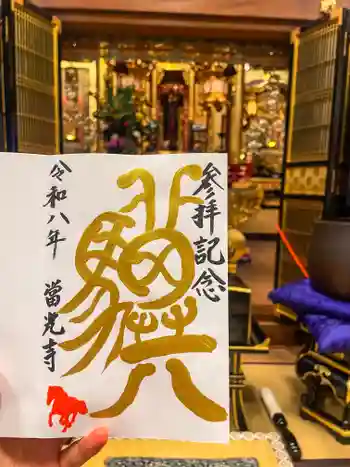 参拝記念
驥
令和八年
當光寺